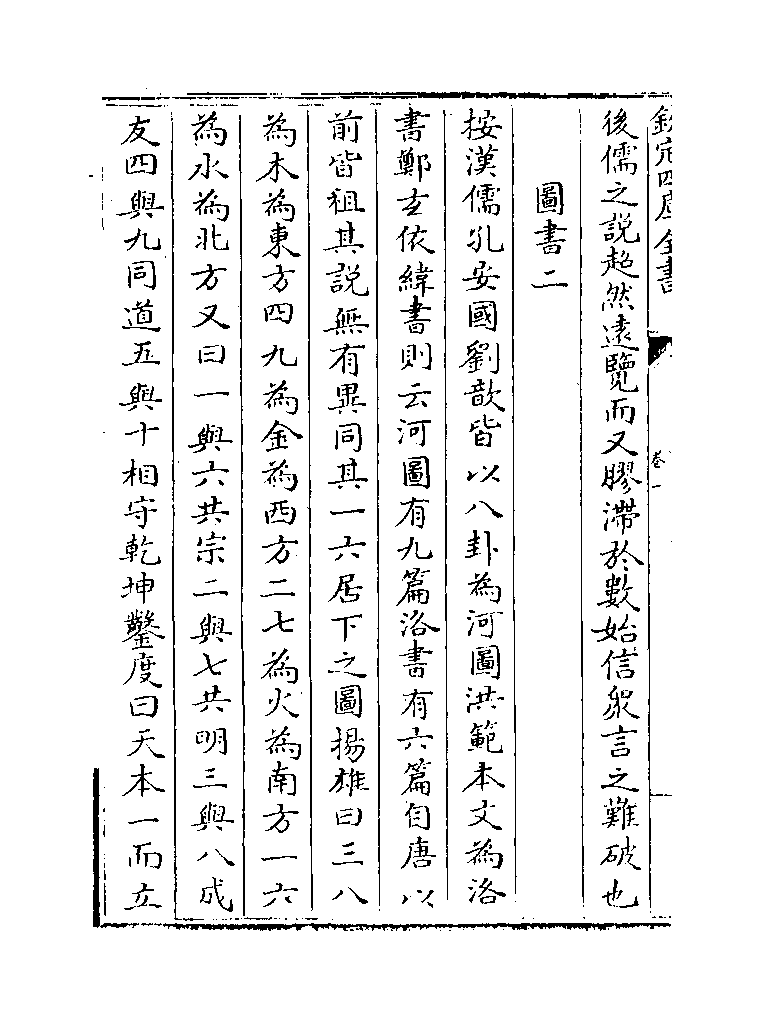 欽定四庫全書
卷一
後儒之說超然遠覽而又膠滯於數始信衆言之難破也
圖書二
按漢儒孔安國劉歆皆以八卦為河圖洪範本文為洛
書鄭𤣥依緯書則云河圖有九篇洛書有六篇自唐以
前皆祖其說無有異同其一六居下之圖揚雄曰三八
為木為東方四九為金為西方二七為火為南方一六
為水為北方又曰一與六共宗二與七共明三與八成
友四與九同道五與十相守乾坤鑿度曰天本一而立